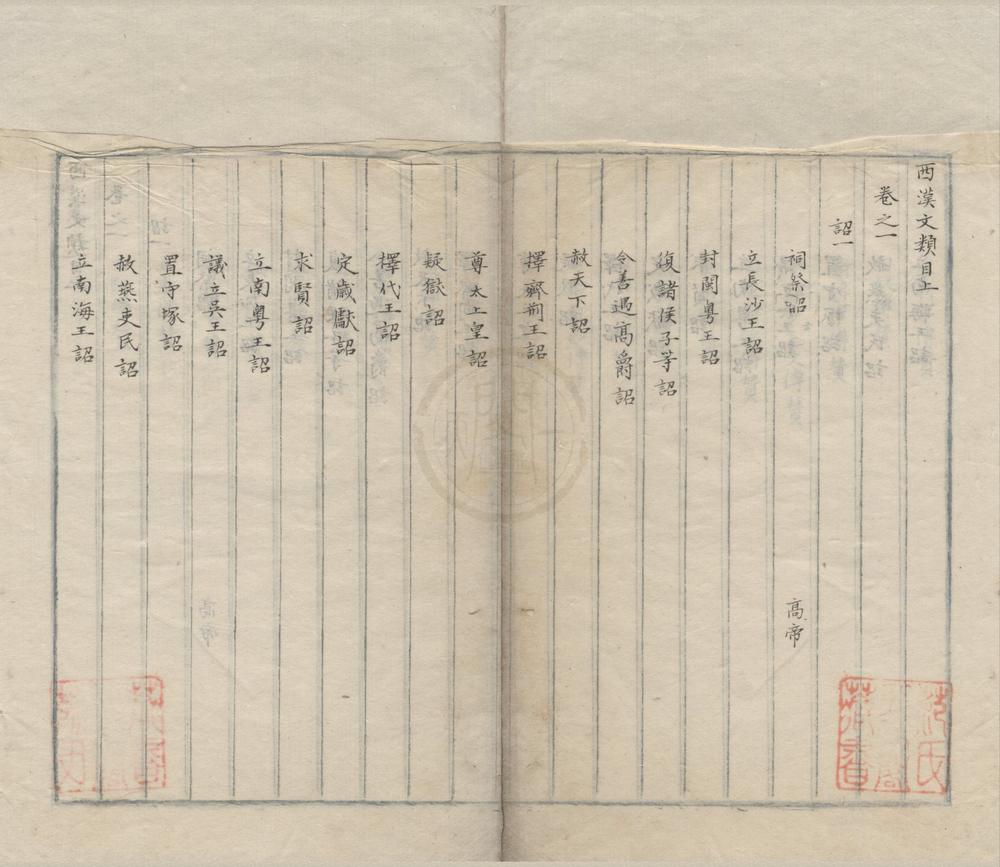 西漢文類目上
卷之一
詔一
祠祭詔 高帝
立長沙王詔
封閩粵王詔
復諸侯子等詔
令善遇高爵詔
赦天下詔
擇齊荊王詔
尊太上皇詔
疑獄詔
擇代王詔
定歲獻詔
求賢詔
立南粵王詔
議立吳王詔
置守塚詔
赦燕吏民詔
立南海王詔